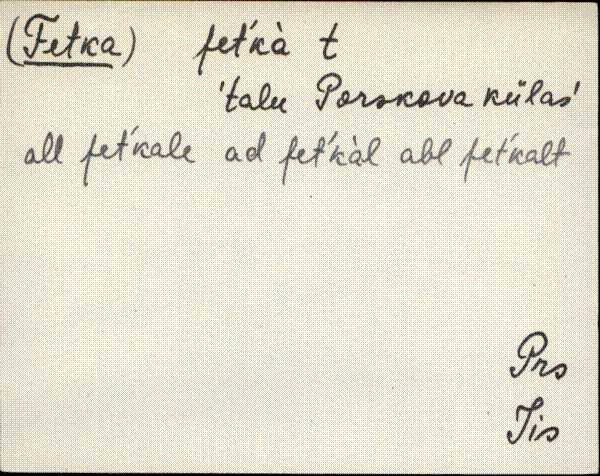 (Fetka) fet́kà t
'talu Porskova külas'
all fet́kale ad fet́kàl abl fet́kalt
Prs
Jis